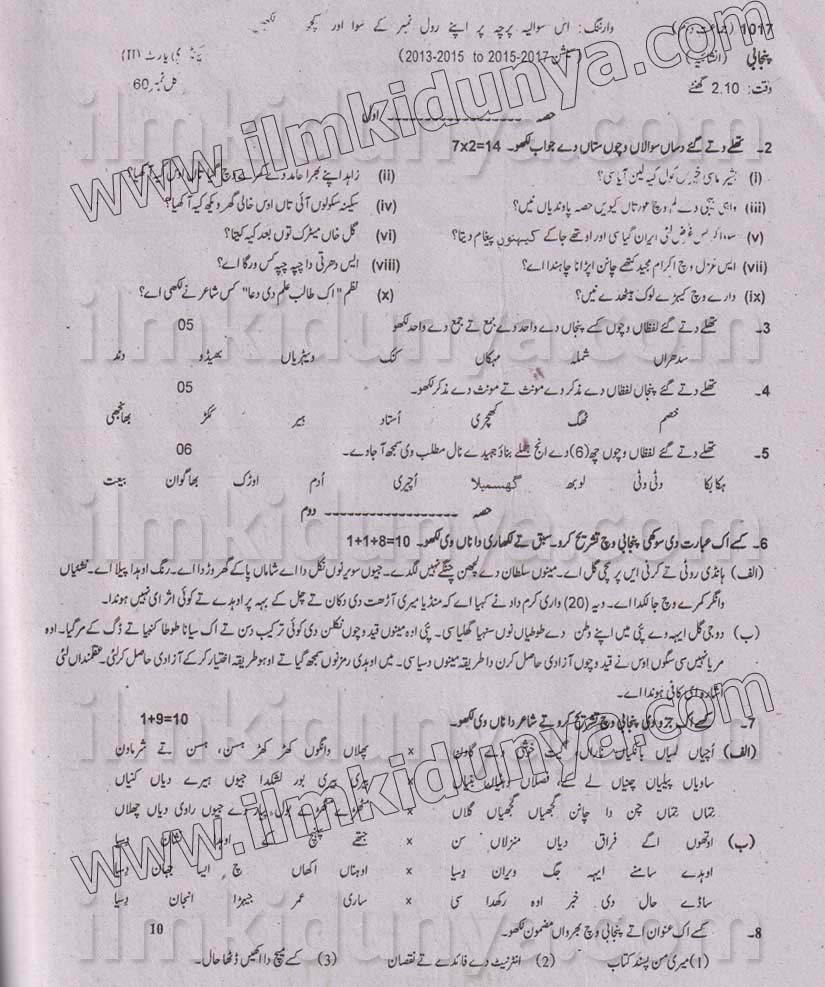 1017 (جماعت دہم) وارننگ: اس سوالیہ پرچہ پر اپنے رول نمبر کے سوا اور کچھ نہ لکھیں
پنجابی (انشائیہ) (سیشن 2015-2017 to 2013-2015) پارٹ (II)
وقت: 2.10 گھنٹے کل نمبر 60
حصہ اول
2۔ تھلے دتے گئے دساں سوالاں وچوں ستاں دے جواب لکھو۔ 7x2=14
(i) بشیر ماسی خیراں کول کیہ لین آیا سی؟ (ii) زاہد اپنے بھرا حامد دے کمرے وچ گیا تاں اوس کیہ آکھیا؟
(iii) واہی بیجی دے کم وچ عورتاں کیویں حصہ پاوندیاں نیں؟ (iv) سکینہ سکولوں آئی تاں اوس خالی گھر ویکھ کیہ آکھیا؟
(v) سوداگر کس غرض لئی ایران گیا سی اور اوتھے جا کے کیہنوں پیغام دیتا؟ (vi) گل خاں میٹرک توں بعد کیہ کیتا؟
(vii) ایس غزل وچ اکرام مجید کتھے چانن اپڑانا چاہندا اے؟ (viii) ایس دھرتی دا چپہ چپہ کس ورگا اے؟
(ix) دارے وچ کیہڑے لوک بیٹھدے نیں؟ (x) نظم "اک طالب علم دی دعا" کس شاعر نے لکھی اے؟
3۔ تھلے دتے گئے لفظاں وچوں کسے پنجاں دے واحد دے جمع تے جمع دے واحد لکھو 05
سدھراں شملہ مہکاں کنک ویہڑیاں بھیڈو دند
4۔ تھلے دتے گئے پنجاں لفظاں دے مذکر دے مونث تے مونث دے مذکر لکھو۔ 05
خصم ٹھگ کھچری اُستاد ہیر ککڑ بھانجی
5۔ تھلے دتے گئے لفظاں وچوں چھ (6) دے انج جملے بناؤ جیہدے نال مطلب وی سمجھ آ جاوے۔ 06
ہکا بکا وٹی وٹی لوبھ گھسمیلا اُچیری اُدم اوڑک بھاگوان بیعت
حصہ دوم
6۔ کسے اک عبارت دی سوکھی پنجابی وچ تشریح کرو۔ سبق تے لکھاری دا ناں وی لکھو۔ 1+1+8=10
(الف) ہانڈی روٹی تے کرنی ایس پر سچی گل اے۔ مینوں سلطان دے لچھن چنگے نہیں لگدے۔ جیوں سویر نوں نکل دا اے شاماں پا کے گھر وڑدا اے۔ رنگ اوہدا پیلا اے۔ نشئیاں
وانگر کمرے وچ جا لکدا اے۔ ویہ (20) واری کرم داد نے کہیا اے کہ منڈیا میری آڑھت دی دکان تے چل کے بہہ پر اوہدے تے کوئی اثر ای نہیں ہوندا۔
(ب) دوجی گل ایہہ دے پئی میں اپنے وطن دے طوطیاں نوں سنہیا گھلیا سی۔ پئی اوہ مینوں قید وچوں نکلن دی کوئی ترکیب دسن تے اک سیانا طوطا کنبھیا تے ڈگ کے مر گیا۔ اوہ
مریا نہیں سی سگوں اوس نے قید وچوں آزادی حاصل کرن دا طریقہ مینوں دسیا سی۔ میں اوہدی رمز نوں سمجھ گیا تے اوہو طریقہ اختیار کر کے آزادی حاصل کر لئی۔ عقلمنداں لئی
اشارہ ای کافی ہوندا اے۔
7۔ کسے اک جزو دی پنجابی وچ تشریح کرو تے شاعر دا ناں وی لکھو۔ 1+9=10
(الف) اُچیاں لمیاں بانکیاں ناراں، گیت خوشی دے گاون x پھلاں وانگوں کھڑ کھڑ ہسن، ہسن تے شرماون
ساویاں پیلیاں چنیاں لے کے، فصلاں x بیری بور لشکدا جیوں ہیرے دیاں کنیاں
جتھاں جتھاں چن دا چانن گجھیاں گجھیاں گلاں x جیوں راوی دیاں چھلاں
(ب) اوتھوں اگے فراق دیاں منزلاں سن x جتھے پہنچ کے اوہدا نشان دسیا
اوہدے سامنے ایہہ جگ ویران دسیا x اوہناں اکھاں چ ایسا جہان دسیا
ساڈے حال دی خبر اوہ رکھدا سی x ساری عمر جیہڑا انجان دسیا
8۔ کسے اک عنوان اتے پنجابی وچ بھرواں مضمون لکھو۔ 10
(1) میری من پسند کتاب (2) انٹرنیٹ دے فائدے تے نقصان (3) کسے میچ دا اکھیں ڈٹھا حال۔
www.ilmkidunya.com